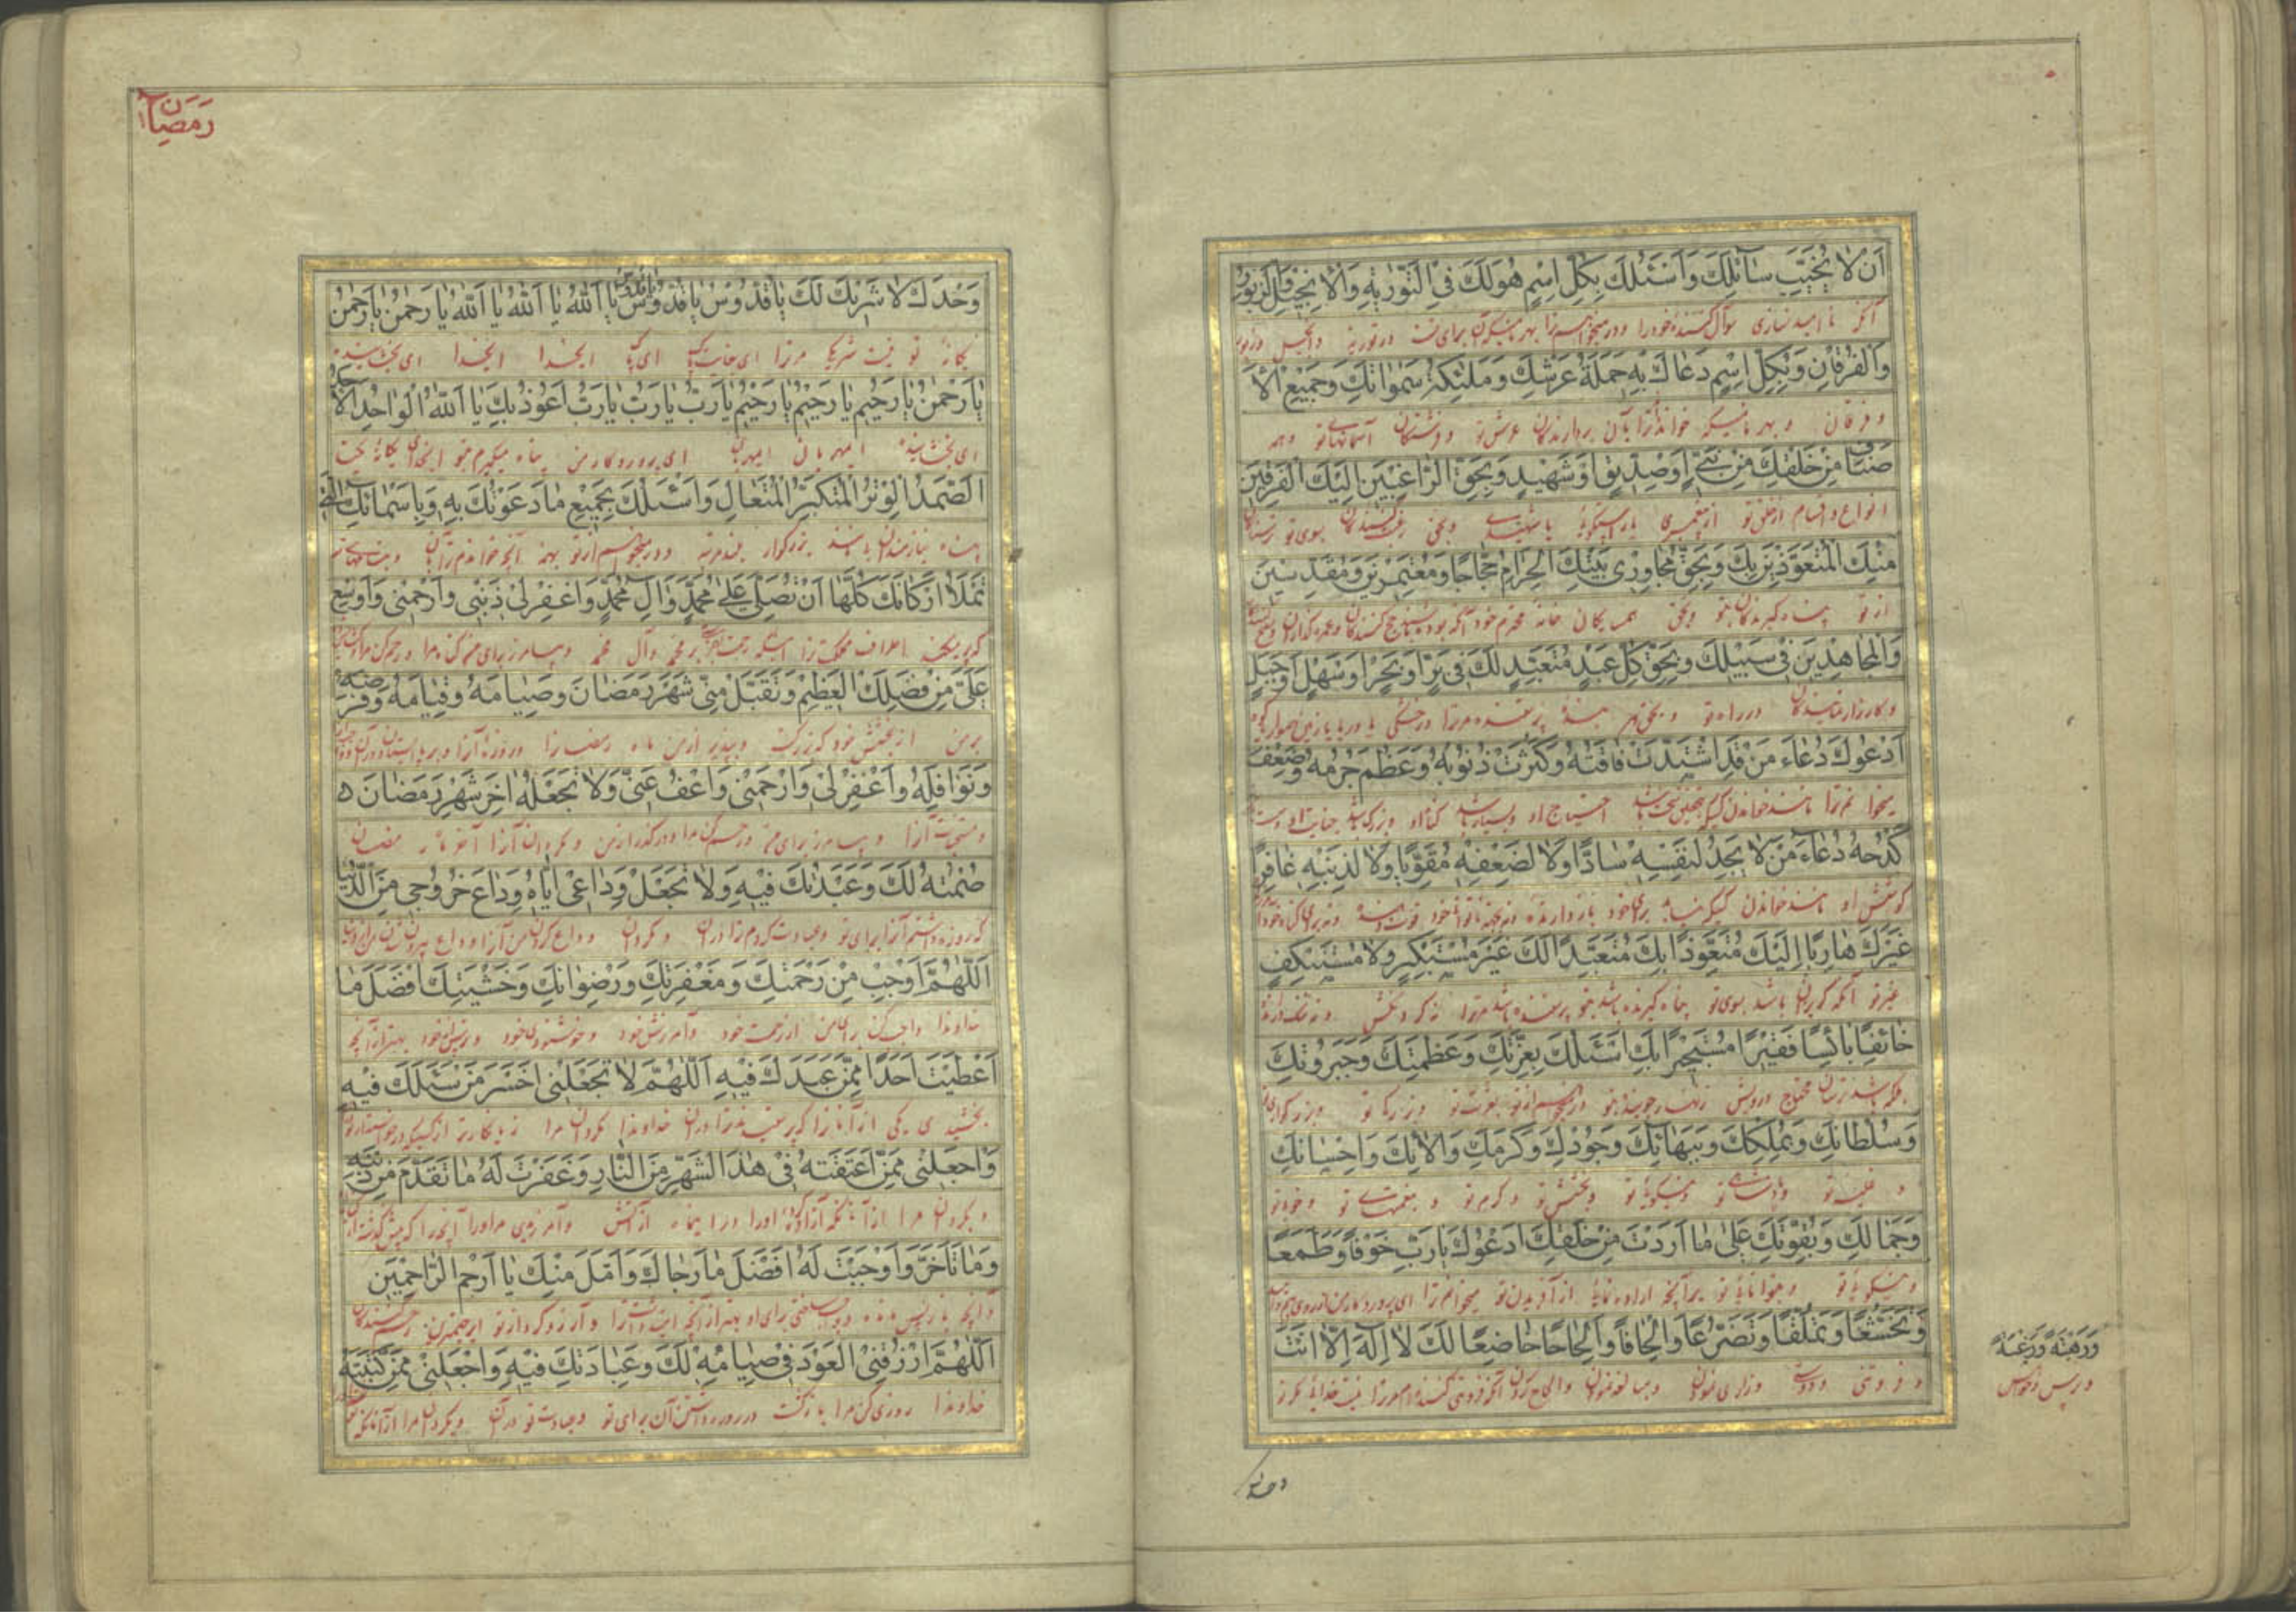 اَنْ لا تُخَيِّبَ سآئِلَكَ وَاَسْئَلُكَ بِكُلِّ اسْمٍ هُوَ لَكَ فِي التَّوْرٰيةِ وَالْاِنْجيلِ وَالزَّبُورِ
آنکه نا امید نسازی سوآل کننده خود را و در میخواهم ترا بهر نامیکه آن برای تست در توریة و انجیل و زبور
وَالْفُرْقانِ وَبِكُلِّ اسْمٍ دَعاكَ بِهِ حَمَلَةُ عَرْشِكَ وَمَلٰئِكَةُ سَمٰواتِكَ وَجَميعُ الْاَ
و فرقان و بهر نامیکه خوانده ترا بآن بردارندگان عرش تو و فرشتگان آسمانهای تو و همه
صْنافِ مِنْ خَلْقِكَ مِنْ نَبِيٍّ اَوْ صِدّيقٍ اَوْ شَهيدٍ وَبِحَقِّ الرّاغِبينَ اِلَيْكَ الْفَرِقينَ
انواع و اقسام از خلق تو از پیغمبری یا راستگوی یا شهیدی و بحق رغبت کنندگان بسوی تو ترسندگان
مِنْكَ الْمُتَعَوِّذينَ بِكَ وَبِحَقِّ مُجاوِري بَيْتِكَ الْحَرامِ حُجّاجًا وَمُعْتَمِرينَ وَمُقَدِّسينَ
از تو پناه گیرندگان بتو و بحق همسایگان خانه محترم خود آنکه بوده باشند حج کنندگان و عمره گذاران
وَالْمُجاهِدينَ في سَبيلِكَ وَبِحَقِّ كُلِّ عَبْدٍ مُتَعَبِّدٍ لَكَ في بَرٍّ اَوْ بَحْرٍ اَوْ سَهْلٍ اَوْ جَبَلٍ
و کارزار نمایندگان در راه تو و بحق هر بنده پرستنده مر ترا در خشکی یا دریا یا زمین هموار یا کوه
اَدْعُوكَ دُعآءَ مَنْ قَدِ اشْتَدَّتْ فاقَتُهُ وَكَثُرَتْ ذُنُوبُهُ وَعَظُمَ جُرْمُهُ وَضَعُفَ
میخوانم ترا مانند خواندن کسیکه بتحقیق سخت باشد احتیاج او و بسیار باشد گناه او و بزرگ باشد جنایت او و سست
كَدْحُهُ دُعآءَ مَنْ لا يَجِدُ لِنَفْسِهِ سادًّا وَلا لِضَعْفِهِ مُقَوِّيًا وَلا لِذَنْبِهِ غافِرًا
کوشش او مانند خواندن کسیکه نیابد برای خود باز دارنده و نه بجهة ناتوانی خود قوت دهنده و نه برای گناه خود
غَيْرَكَ هارِبًا اِلَيْكَ مُتَعَوِّذًا بِكَ مُتَعَبِّدًا لَكَ غَيْرَ مُسْتَكْبِرٍ وَلا مُسْتَنْكِفٍ
غیر تو آنکه گریزان باشد بسوی تو پناه گیرنده باشد بتو پرستنده باشد مر ترا نه گردنکش و نه ننگ دارنده
خآئِفًا بآئِسًا فَقيرًا مُسْتَجيرًا بِكَ اَسْئَلُكَ بِعِزَّتِكَ وَعَظَمَتِكَ وَجَبَرُوتِكَ
بلکه باشد ترسان محتاج درویش زنهار جوینده بتو در میخواهم از تو بعزت تو و بزرگی تو و بزرگواری تو
وَسُلْطانِكَ وَبِمُلْكِكَ وَبِبَهآئِكَ وَجُودِكَ وَكَرَمِكَ وَالآئِكَ وَاِحْسانِكَ
و غلبه تو و پادشاهی تو و نیکویی تو و بخشش تو و کرم تو و نعمتهای تو و خوبی تو
وَجَمالِكَ وَبِقُوَّتِكَ عَلٰى ما اَرَدْتَ مِنْ خَلْقِكَ اَدْعُوكَ يا رَبِّ خَوْفًا وَطَمَعًا
و نیکویی تو و بتوانایی تو بر آنچه اراده نمایی از آفریدن تو میخوانم ترا ای پروردگار من از روی بیم و امید
وَتَخَشُّعًا وَتَمَلُّقًا وَتَضَرُّعًا وَاِلْحافًا وَاِلْحاحًا خاضِعًا لَكَ لا اِلٰهَ اِلّا اَنْتَ
و فروتنی و دوستی و زاری نمودن و مبالغه نمودن و الحاح کردن آنکه فروتنی کننده ام مر ترا نیست خدای مگر تو
وَرَهْبَةً وَرَغْبَةً
و ترس و خواهش
وحدك
رمضان
وَحْدَكَ لا شَريكَ لَكَ يا قُدُّوسُ يا قُدُّوسُ يا قُدُّوسُ يا اَللّٰهُ يا اَللّٰهُ يا اَللّٰهُ يا رَحْمٰنُ يا رَحْمٰنُ
یگانه تو نیست شریک مر ترا ای بغایت پاک ای پاک ایخدا ایخدا ای بخشاینده
يا رَحْمٰنُ يا رَحيمُ يا رَحيمُ يا رَحيمُ يا رَبُّ يا رَبُّ يا رَبُّ اَعُوذُ بِكَ يا اَللّٰهُ الْواحِدُ الْاَحَدُ
ای بخشاینده ای مهربان ای مهربان ای پروردگار من پناه میگیرم بتو ایخدای یگانه یکتا
الصَّمَدُ الْوِتْرُ الْمُتَكَبِّرُ الْمُتَعالِ وَاَسْئَلُكَ بِجَميعِ ما دَعَوْتُكَ بِهِ وَبِاَسْمآئِكَ الَّتي
پناه نیازمندان بزرگوار بلند مرتبه و در میخواهم از تو بهمه آنچه خواندم ترا بآن و بنامهای تو
تَمْلَأُ اَرْكانَكَ كُلَّها اَنْ تُصَلِّيَ عَلٰى مُحَمَّدٍ وَآلِ مُحَمَّدٍ وَاغْفِرْ لي ذَنْبي وَارْحَمْني وَاَوْسِعْ
که پر میکند اطراف مملکت ترا اینکه رحمت بفرستی بر محمد و آل محمد و بیامرز برای من گناه مرا و رحم کن مرا
عَلَيَّ مِنْ فَضْلِكَ الْعَظيمِ وَتَقَبَّلْ مِنّي شَهْرَ رَمَضانَ وَصِيامَهُ وَقِيامَهُ وَفَرْضَهُ
بر من از بخشش خود که بزرگست و بپذیر از من ماه رمضان را و روزه آنرا و بر پا ایستادن در آن
وَنَوافِلَهُ وَاغْفِرْ لي وَارْحَمْني وَاعْفُ عَنّي وَلا تَجْعَلْهُ اٰخِرَ شَهْرِ رَمَضانَ
و سنتهای آنرا و بیامرز برای من و رحم کن مرا و درگذر از من و مگردان آنرا آخر ماه رمضان
صُمْتُهُ لَكَ وَعَبَدْتُكَ فيهِ وَلا تَجْعَلْ وَداعي اِيّاهُ وَداعَ خُرُوجي مِنَ الدُّنْيا
که روزه داشتم آنرا برای تو و عبادت کردم ترا در آن و مگردان وداع کردن من آنرا وداع بیرون شدن من از دنیا
اَللّٰهُمَّ اَوْجِبْ مِنْ رَحْمَتِكَ وَمَغْفِرَتِكَ وَرِضْوانِكَ وَخَشْيَتِكَ اَفْضَلَ ما
خداوندا واجب کن برای من از رحمت خود و آمرزش خود و خوشنودی خود و ترس خود بهتر از آنچه
اَعْطَيْتَ اَحَدًا مِمَّنْ عَبَدَكَ فيهِ اَللّٰهُمَّ لا تَجْعَلْني اَخْسَرَ مَنْ سَئَلَكَ فيهِ
بخشیدی یکی از آنانرا که پرستیدند ترا در آن خداوندا مگردان مرا زیانکارتر از کسیکه درخواست از تو
وَاجْعَلْني مِمَّنْ اَعْتَقْتَهُ في هٰذَا الشَّهْرِ مِنَ النّارِ وَغَفَرْتَ لَهُ ما تَقَدَّمَ مِنْ ذَنْبِهِ
و بگردان مرا از آنکه آزاد کرده اورا در این ماه از آتش و آمرزیدی مر اورا آنچه را که پیش گذشته از
وَما تَاَخَّرَ وَاَوْجَبْتَ لَهُ اَفْضَلَ ما رَجاكَ وَاَمَّلَ مِنْكَ يا اَرْحَمَ الرّاحِمينَ
و آنچه باز پس مانده و واجب ساختی برای او بهتر از آنچه امید داشت ترا و آرزو کرد از تو ای رحیمترین رحم کنندگان
اَللّٰهُمَّ ارْزُقْنِي الْعَوْدَ في صِيامِهِ لَكَ وَعِبادَتِكَ فيهِ وَاجْعَلْني مِمَّنْ كَتَبْتَهُ
خداوندا روزی کن مرا بازگشت در روزه داشتن آن برای تو و عبادت تو در آن و بگردان مرا از آنانکه